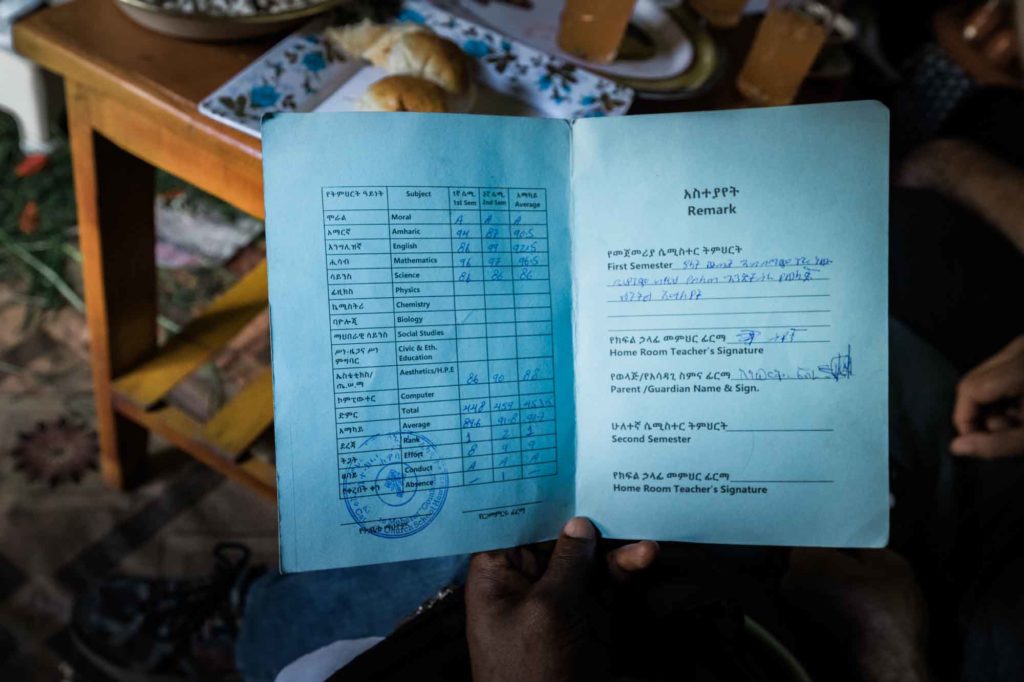 የትምህርት ዓይነት Subject 1ኛ ሴሚ 1st Sem 2ኛ ሴሚ 2nd Sem አማካይ Average
ሞራል Moral A A A
አማርኛ Amharic 94 87 90.5
እንግሊዝኛ English 86 99 92.5
ሒሳብ Mathematics 96 97 96.5
ሳይንስ Science 86 86 86
ፊዚክስ Physics
ኬሚስትሪ Chemistry
ባዮሎጂ Biology
ማህበራዊ ሳይንስ Social Studies
ሥነ-ዜጋና ሥነ ምግባር Civic & Eth. Education
ኤስቴቲክስ/ ጤ.ሠ.ማ Aesthetics/H.P.E 86 90 88
ኮምፒውተር Computer
ድምር Total 448 459 453.5
አማካይ Average 89.6 91.8 90.7
ደረጃ Rank 1 2 1
ትጋት Effort
ፀባይ Conduct A A A
የቀረበት ቀን Absence
አስተያየት
Remark
የመጀመሪያ ሴሚስተር ትምህርት
First Semester
የክፍል ኃላፊ መምህር ፊርማ
Home Room Teacher's Signature
የወላጅ/የአሳዳጊ ስምና ፊርማ
Parent /Guardian Name & Sign.
ሁለተኛ ሴሚስተር ትምህርት
Second Semester
የክፍል ኃላፊ መምህር ፊርማ
Home Room Teacher's Signature